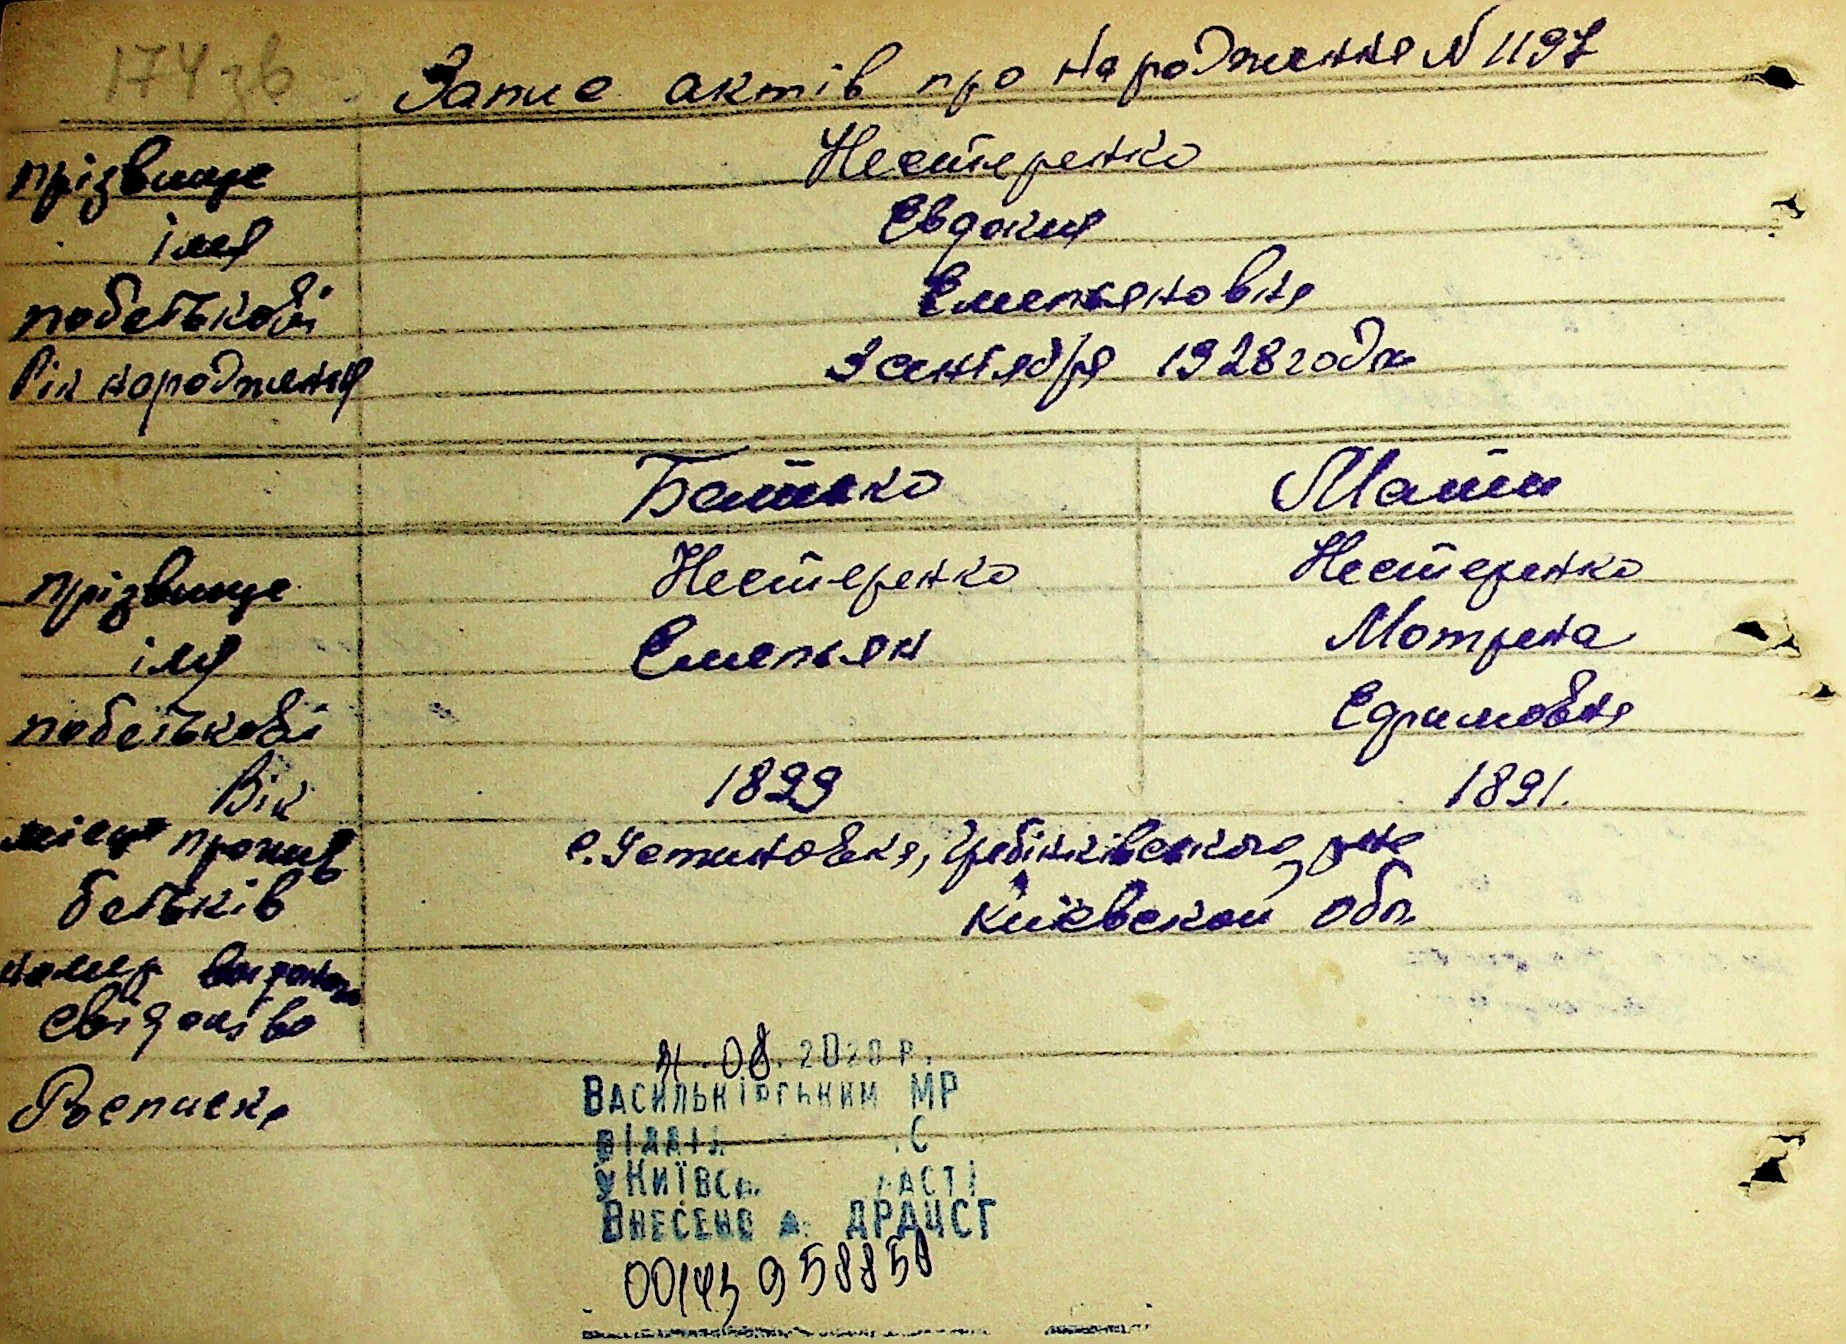 174 зв
Запис актів про народження N 1197
прізвище Нестеренко
імя Евдокия
побатькові Емельяновна
Рік народження 3 сентября 1928 года
Батько Мати
прізвище Нестеренко Нестеренко
імя Емельян Мотрена
побатькові Ефимовна
Вік 1899 1891.
місце прожив с. Устиновка, Гребінківського р-на
батьків Київской обл.
номер виданого
свідоцтва
Росписка
.08.2020 р.
Васильківським МР
у Київс
Внесено до ДРАЦСГ